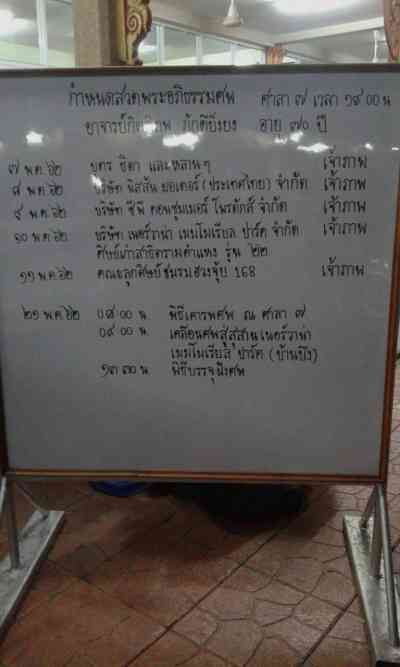 กำหนดสวดพระอภิธรรมศพ ศาลา ๗ เวลา ๑๙ ๐๐ น
อาจารย์กิตติภพ ภักดียิ่งยง อายุ ๗๐ ปี
๗ พ.ค ๖๒ บุตร ธิดา และหลาน ๆ เจ้าภาพ
๘ พ.ค ๖๒ บริษัท นิสสัน มอเตอร์ (ประเทศไทย) จำกัด เจ้าภาพ
๙ พ.ค ๖๒ บริษัท ซีพี คอนซูมเมอร์ โพรดักส์ จำกัด เจ้าภาพ
๑๐ พ.ค ๖๒ บริษัท เนอร์วาน่า เมมโมเรียล ปาร์ค จำกัด เจ้าภาพ
ศิษย์เก่าสาธิตรามคำแหง รุ่น ๒๒
๑๑ พ.ค ๖๒ คณะลูกศิษย์ชมรมฮวงจุ้ย 168 เจ้าภาพ
๒๑ พ.ค ๖๒ ๐๘ ๐๐ น. พิธีเคารพศพ ณ ศาลา ๗
๐๙ ๐๐ น. เคลื่อนศพสู่สุสาน เนอร์วาน่า
เมมโมเรียล ปาร์ค (บ้านบึง)
๑๓ ๓๐ น พิธีบรรจุฝังศพ